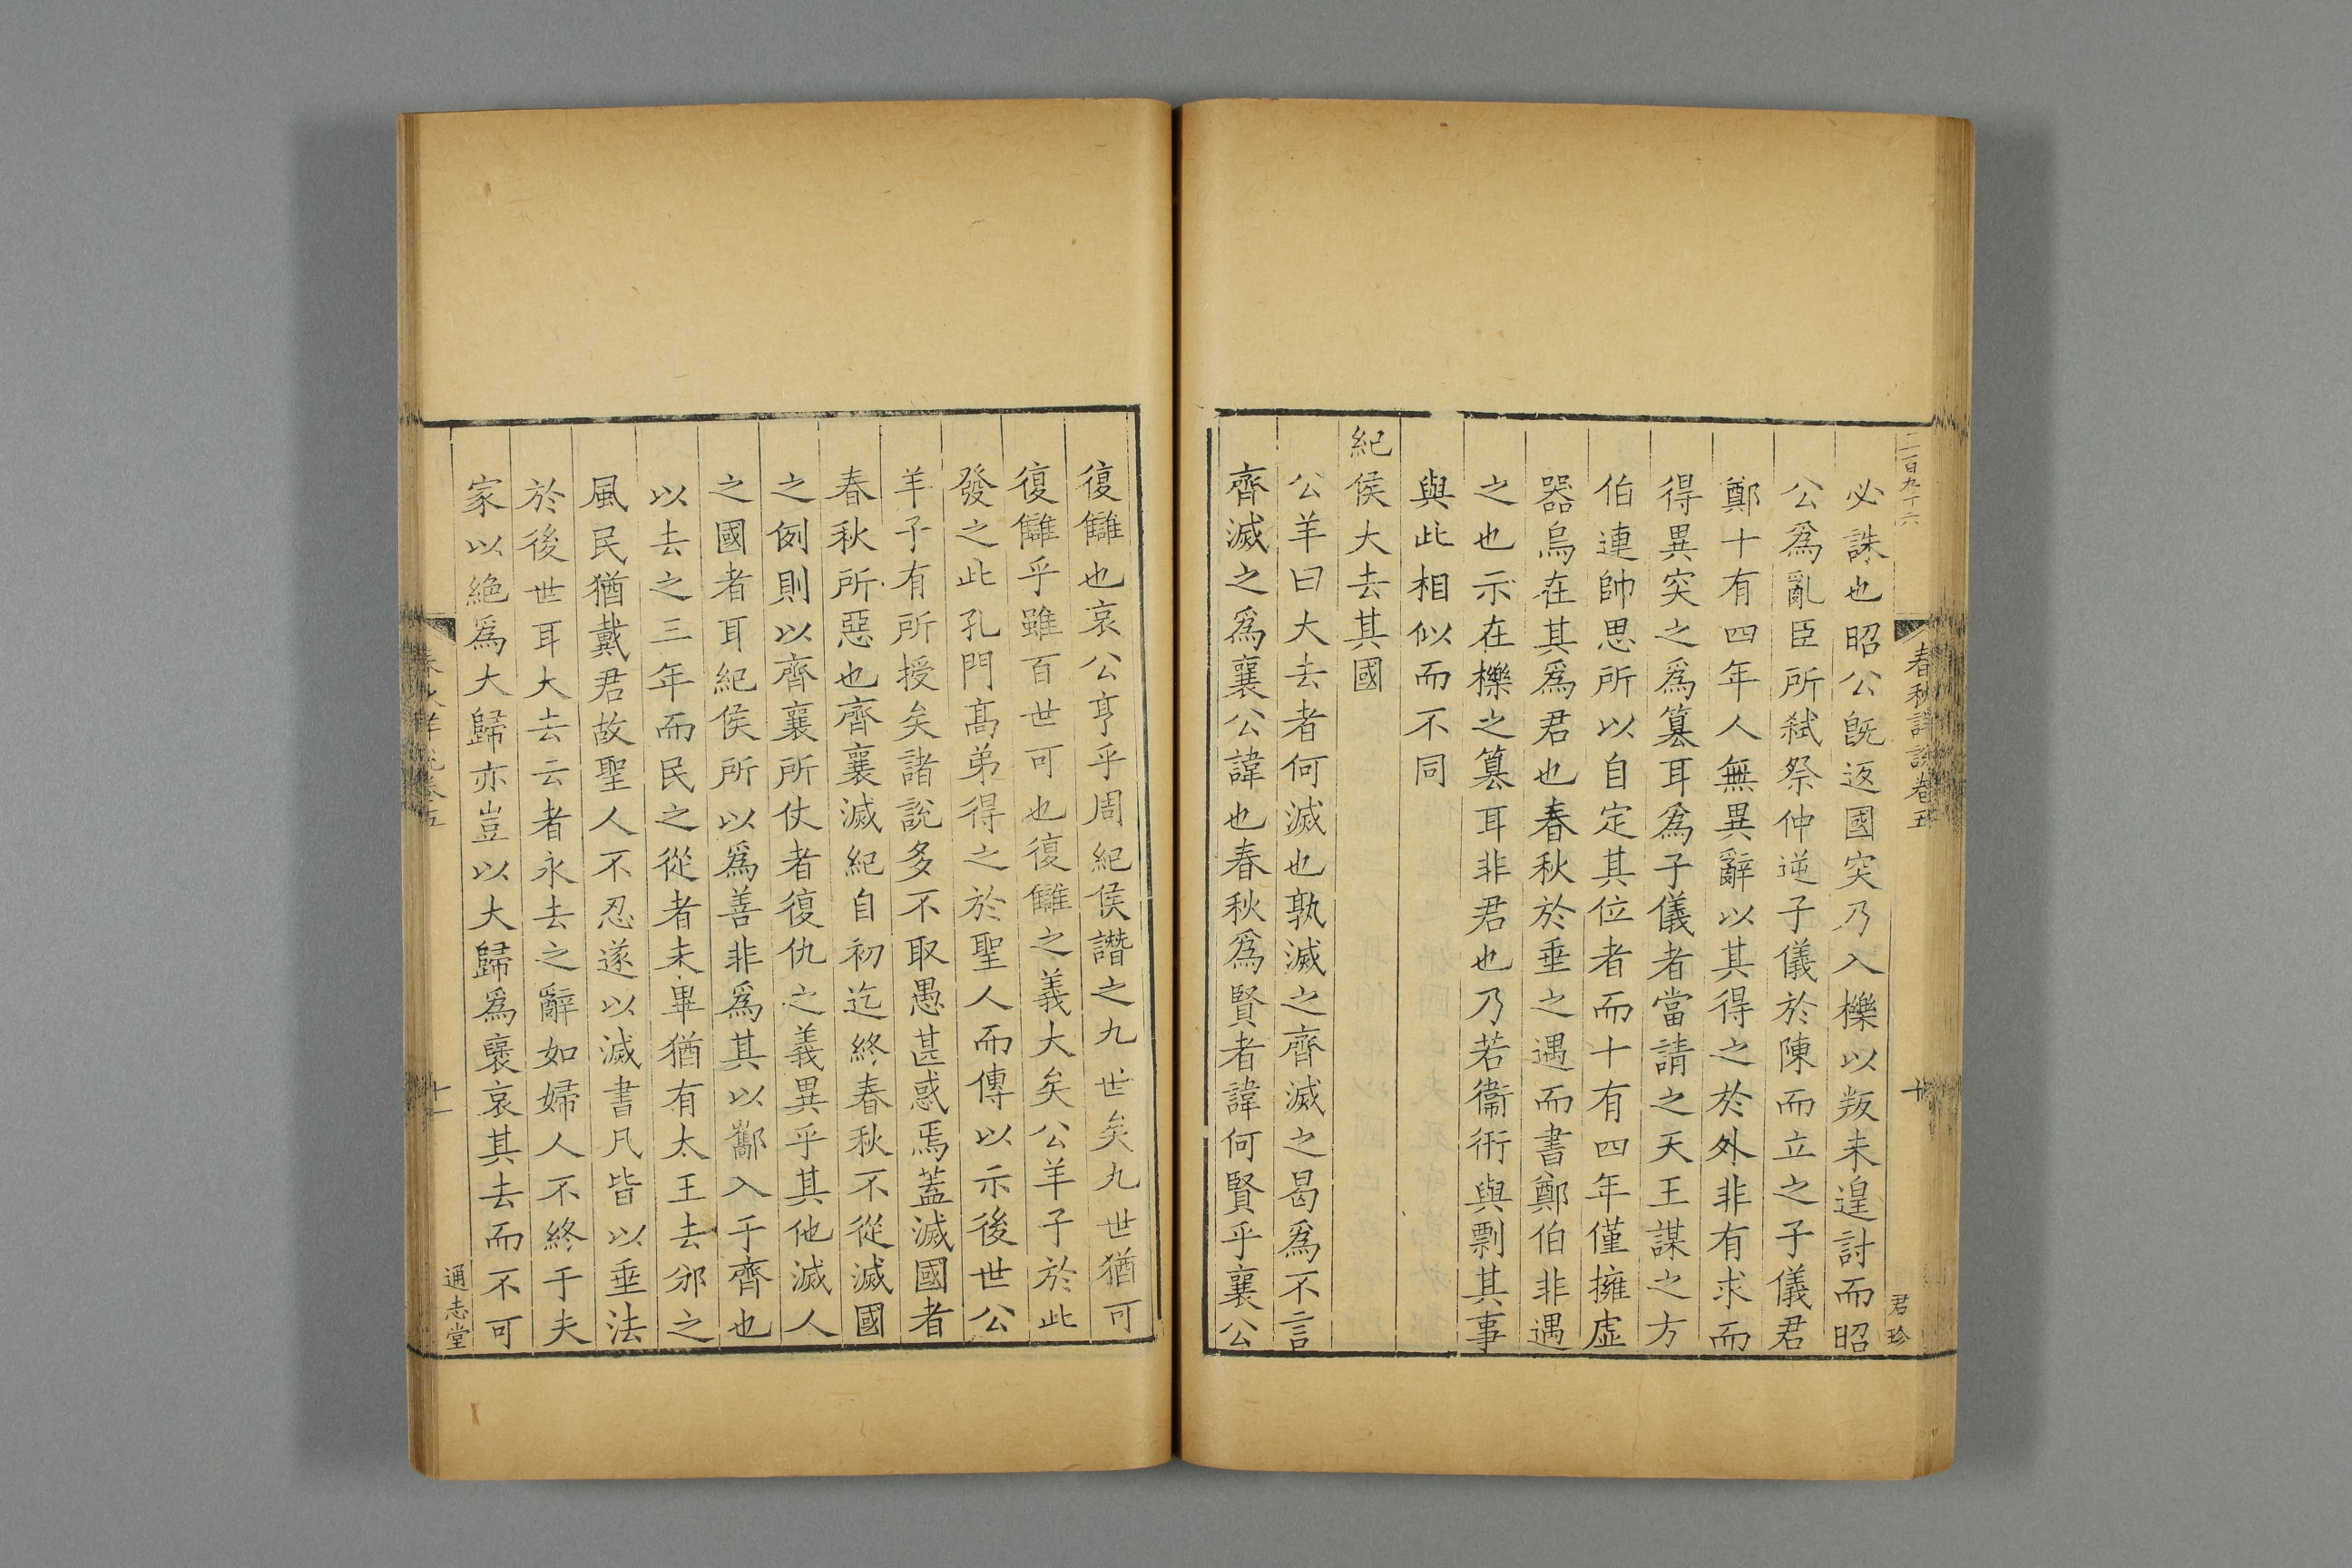 二百九十六
春秋詳說卷五
十
君珍
必誅也昭公旣返國突乃入櫟以叛未遑討而昭
公爲亂臣所弑祭仲逆子儀於陳而立之子儀君
鄭十有四年人無異辭以其得之於外非有求而
得異突之爲篡耳爲子儀者當請之天王謀之方
伯連帥思所以自定其位者而十有四年僅擁虛
器烏在其爲君也春秋於垂之遇而書鄭伯非遇
之也示在櫟之篡耳非君也乃若衞衎與剽其事
與此相似而不同
紀侯大去其國
公羊曰大去者何滅也孰滅之齊滅之曷爲不言
齊滅之爲襄公諱也春秋爲賢者諱何賢乎襄公
復讎也哀公亨乎周紀侯譖之九世矣九世猶可
復讎乎雖百世可也復讎之義大矣公羊子於此
發之此孔門高弟得之於聖人而傳以示後世公
羊子有所授矣諸說多不取愚甚惑焉蓋滅國者
春秋所惡也齊襄滅紀自初迄終春秋不從滅國
之例則以齊襄所仗者復仇之義異乎其他滅人
之國者耳紀侯所以爲善非爲其以酅入于齊也
以去之三年而民之從者未畢猶有太王去邠之
風民猶戴君故聖人不忍遂以滅書凡皆以垂法
於後世耳大去云者永去之辭如婦人不終于夫
家以絕爲大歸亦豈以大歸爲襃哀其去而不可
春秋詳說卷五
十一
通志堂